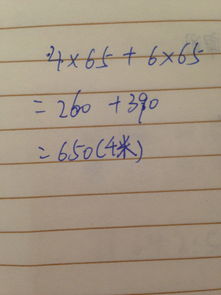 4×65+6×65
=260+390
=650(4米)